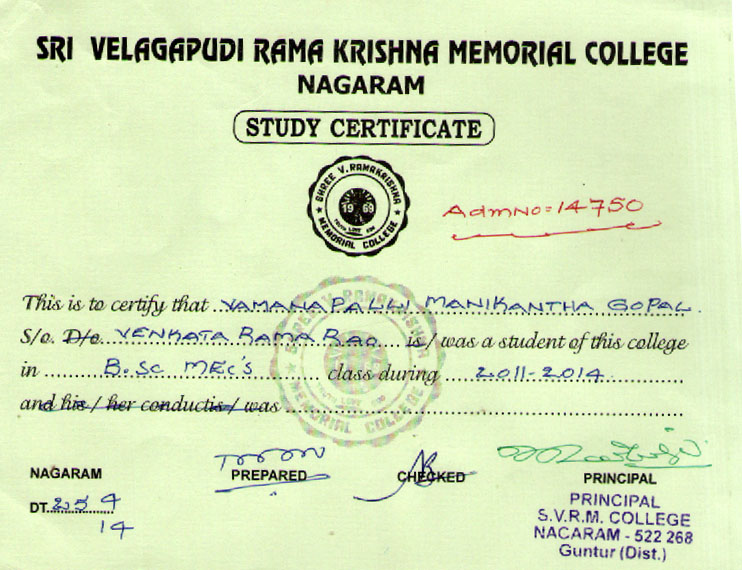 SRI VELAGAPUDI RAMA KRISHNA MEMORIAL COLLEGE
NAGARAM
STUDY CERTIFICATE
SHREE V. RAMAKRISHNA
1969
MEMORIAL COLLEGE
AdmNo=14750
This is to certify that YAMANAPALLI MANIKANTHA GOPAL
S/o. D/o. VENKATA RAMA RAO is / was a student of this college
in B.Sc MECS class during 2011-2014
and his / her conduct is / was
NAGARAM PREPARED CHECKED PRINCIPAL
DT. 4
14
PRINCIPAL
S.V.R.M. COLLEGE
NACARAM - 522 268
Guntur (Dist.)